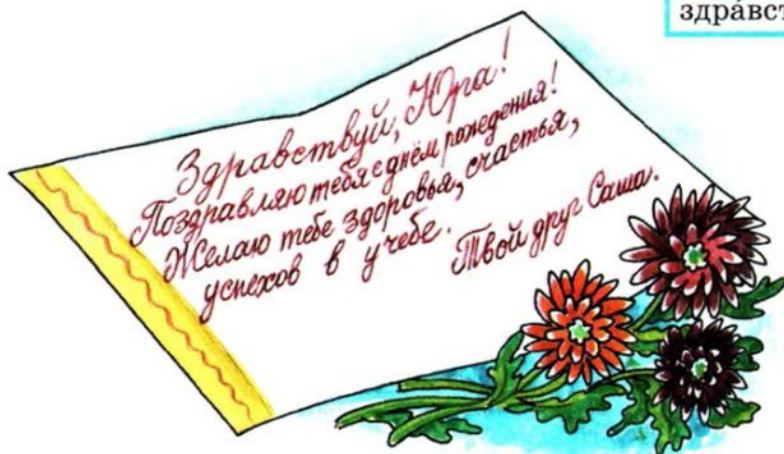 здра́вст
Здравствуй, Юра!
Поздравляю тебя с днём рождения!
Желаю тебе здоровья, счастья,
успехов в учебе.
Твой друг Саша.